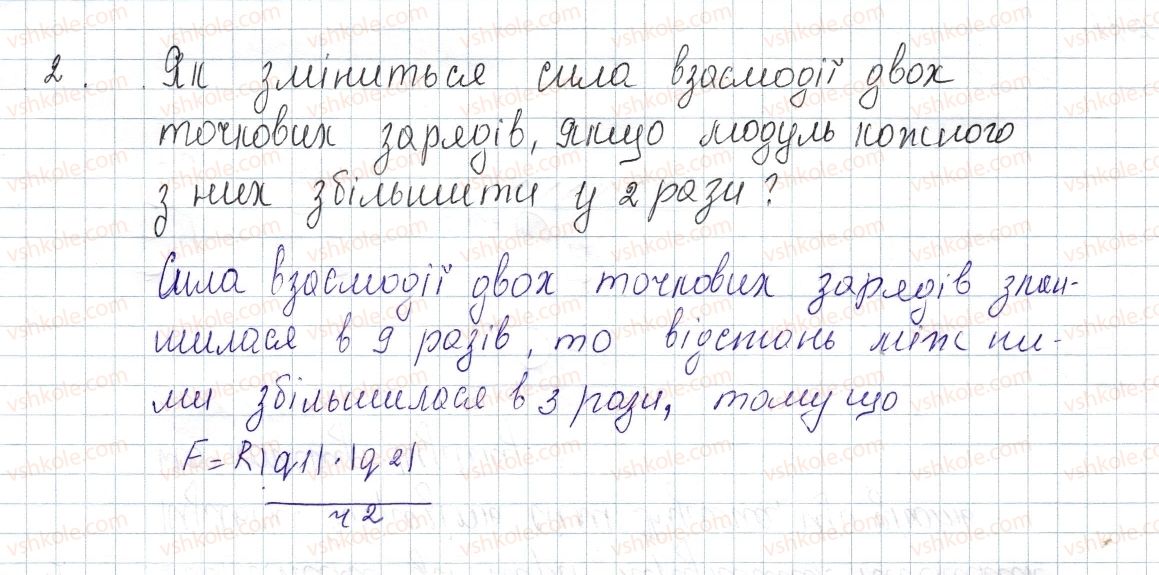 2. Як зміниться сила взаємодії двох
точкових зарядів, якщо модуль кожного
з них збільшити у 2 рази?
Сила взаємодії двох точкових зарядів змен-
шилася в 9 разів, то відстань між ни-
ми збільшилася в 3 рази, тому що
F = R|q1|·|q2|
ч2